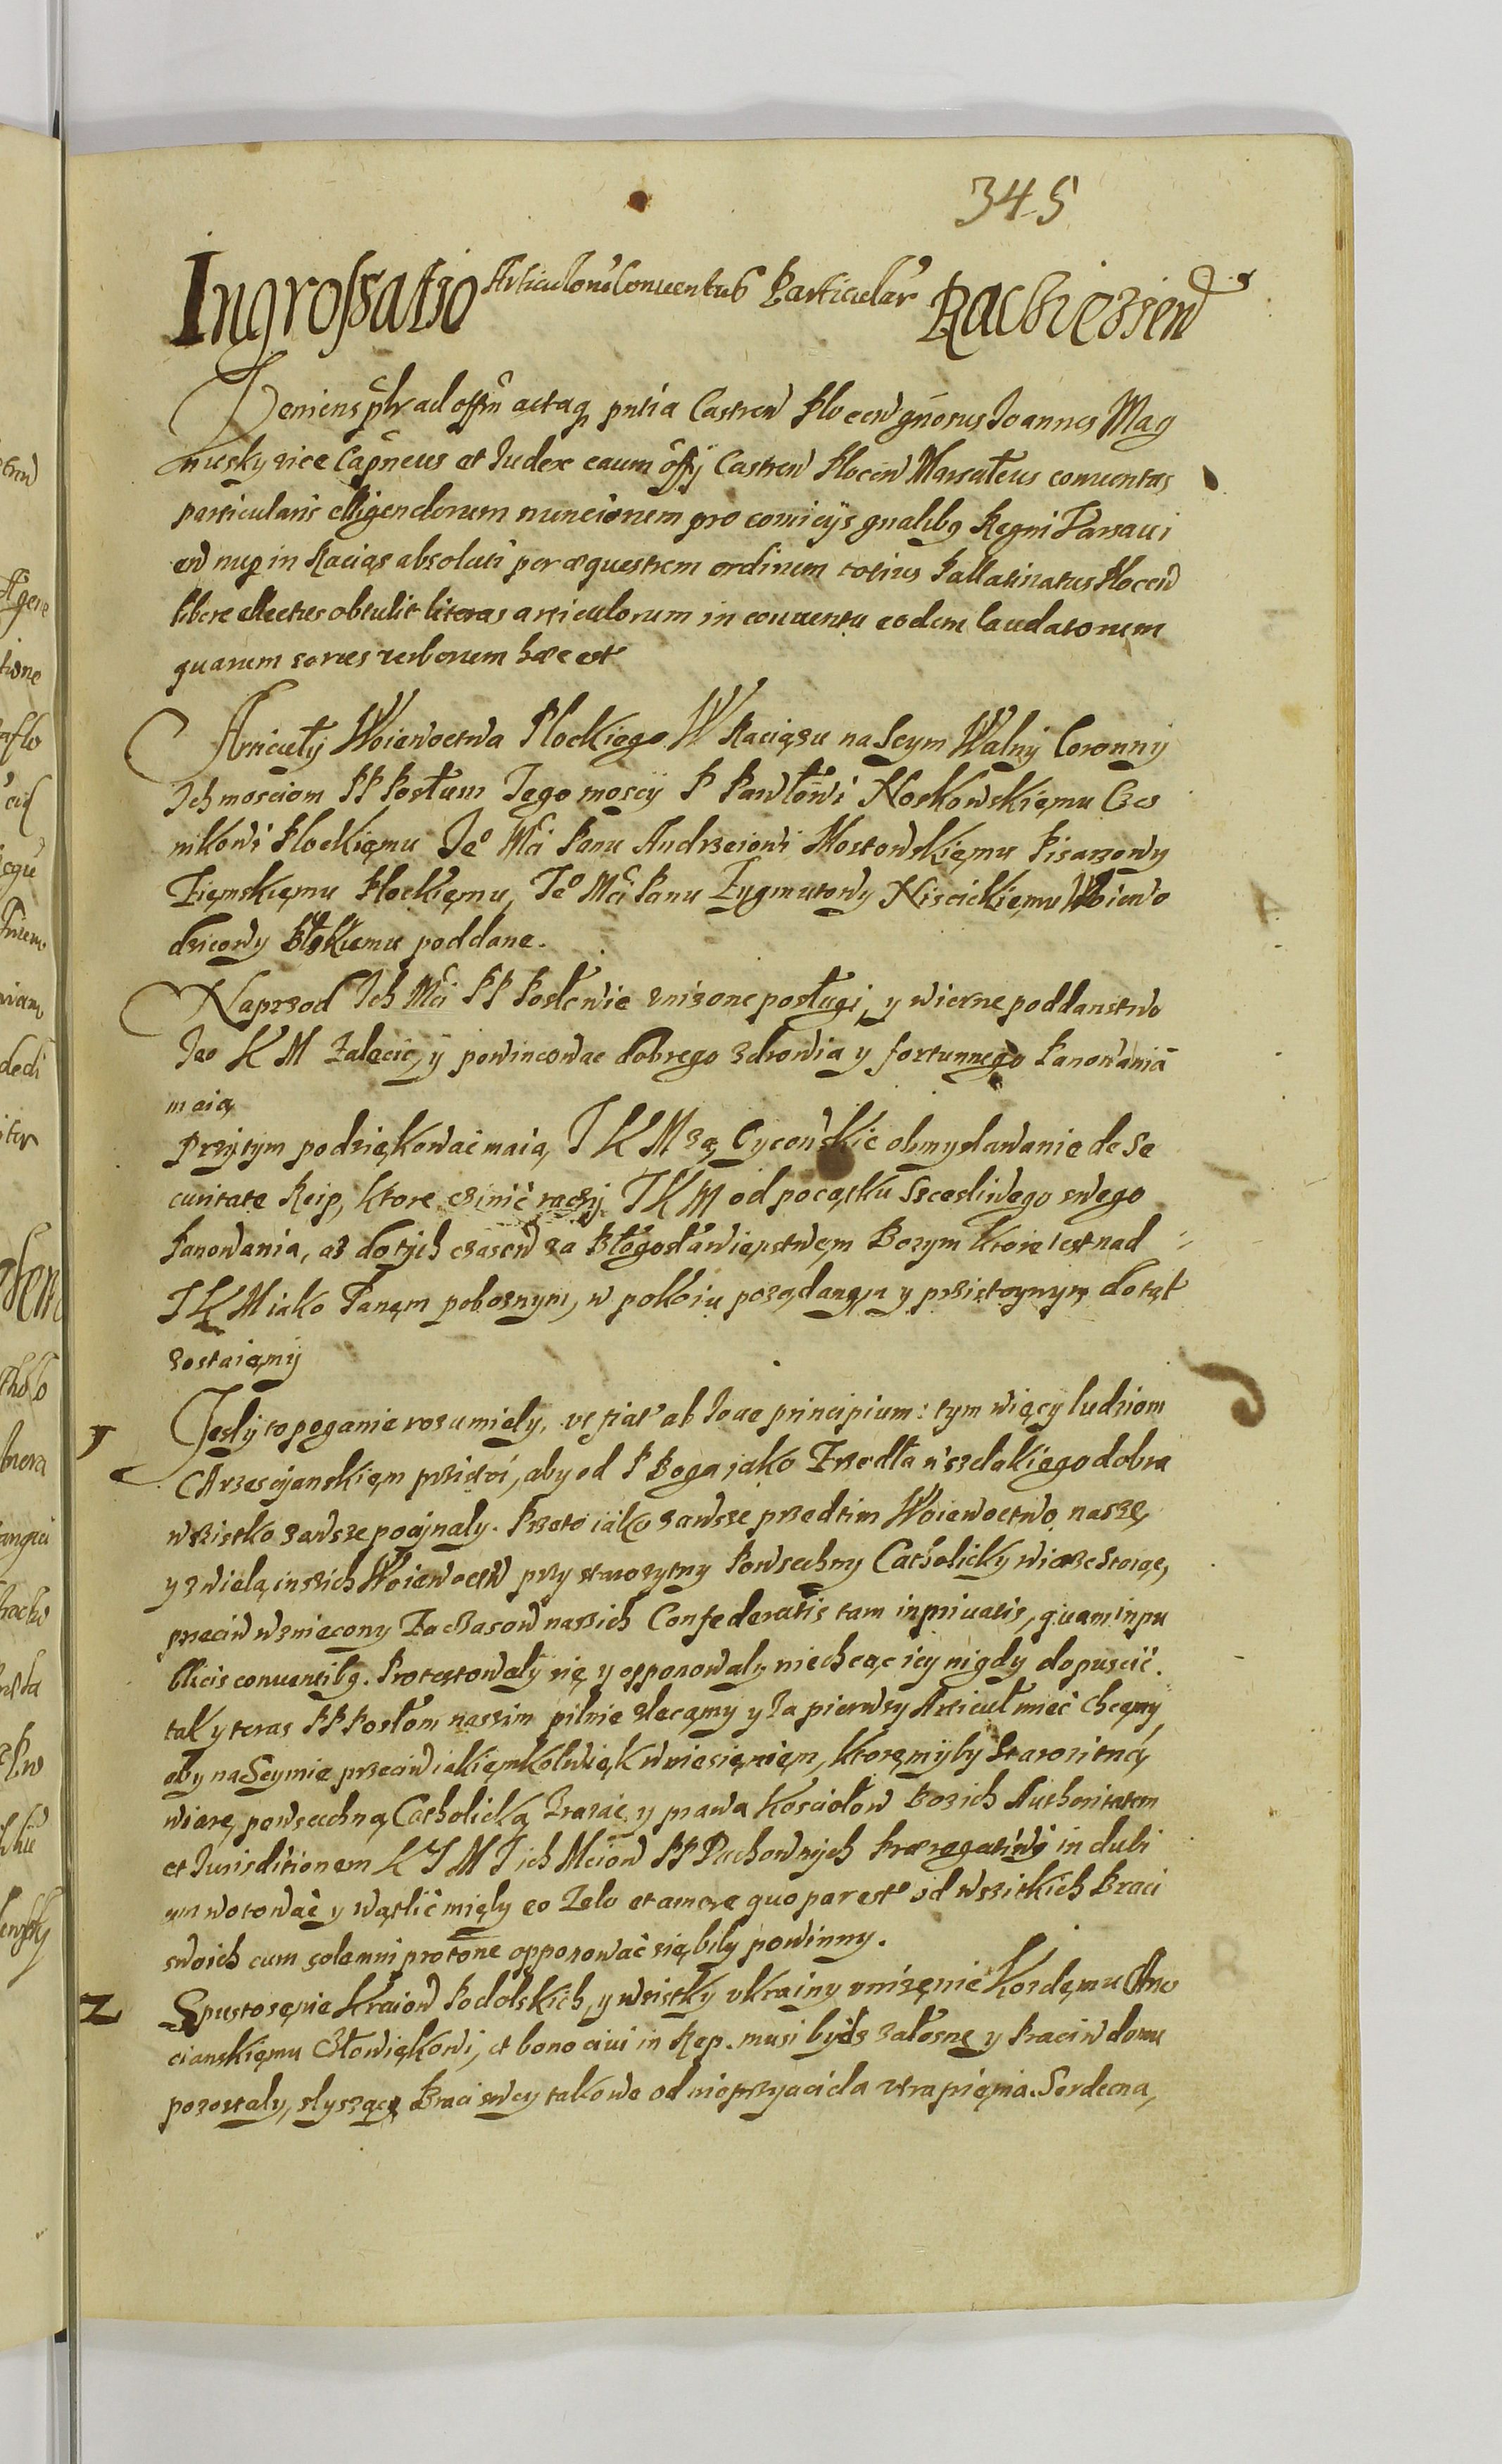 345
Ingrossatio Articulorũ Conuentus Particular Rachiezien
Veniens ad offm actaq pntia Castren Plocen gnosus Ioannes Mag
nusky vice Capneus et Iudex caum offy Castren Plocen Marsalcus conuentus
particularis elligendorum nuncionem pro comicijs gnalibq Regni Varsaui
en nup in Raciąs absoluti per æquestrem ordinem totius Pallatinatus Plocen
libere ellectus obtulit literas articulorum in conuentu eodem laudatorum
quarum series verborum hæc est
Articuły Woiewoctwa Plockiego W Raciązu na Seym Walny Coronny
Ich mosciom PP Posłum Iego moscy P Pawłowi Noskowskięmu Czes
nikowi Plockięmu Ie° Mci Panu Andrzeiowi Mostowskięmu Pisarzowy
Zięmskięmu Plockięmu, Ie° Mci Panu Zygmutowy Niscickięmu Woiewo
dzicowy poddane.
Naprzod Ich Mci PP Posłowie znizone posługi, y wierne poddanstwo
Ieo K M Zalecic, y powincowac dobrego zdrowia y fortunnego Panowania
maią
Przytym podziękowac maią, I K M zą Oycowskie obmyslawanie de Se
curitate Reip, ktore czinić raczy I K M od pocątku Szcesliwego swego
Panowania, aż dotych czasow za Błogosławięnstwęm Bozym ktore iest nad
I K M iako Panąm poboznym, w pokoiu poządanęm y przistoynym dotąt
zostaięmy
1 Iesly to poganie rozumiely, vt fiat ab Ioue principium: tym więcy ludziom
Chrzescyanskięm przistoi, aby od P Boga iako Zrzodła wszelakiego dobra
wszistko zawsze poczynaly. Przeto iako zawsze przedtim Woiewoctwo naszę,
y z wielą inszich Woiewoctw przy starozytny Powsechny Catholicky wierze stoiąc,
przeciw wzniecony Za czasow naszich Confederatis tam in priuatis, quam in pu
blicis conuentibq. Protestowaly się y opponowaly niechcąc iey nigdy dopuscić.
tak y teras PP Posłom naszim pilnie zlecamy y Za pierwszy Articuł mieć chcęmy
aby na Seymie przeciw iakięmkolwięk wniesięnięm, ktoręmyby Starozitną
wiarę, powsechną Catholicką Zrazac y prawa Kosciołow Bozich Authoritatem
et Iurisditionem K I M I ich Mciow PP Duchownych Præregatiwi in dubi
um wotować y wątlić mięly eo Zelo et amore quo par est od wszitkich Braci
swoich cum solemni protone opponować się bily powinny.
2 Spustoszęnie Kraiow Podolskich, y wszistky vkrainy znizęnie Kozdęmu Chrzes
cianskięmu Człowiękowi, et bono ciui in Rep. musi bydz załosne y Braci w domu
pozostaly, slysząc Braci swey takowe od nieprzyaciela vtrapięnia. Serdecna,